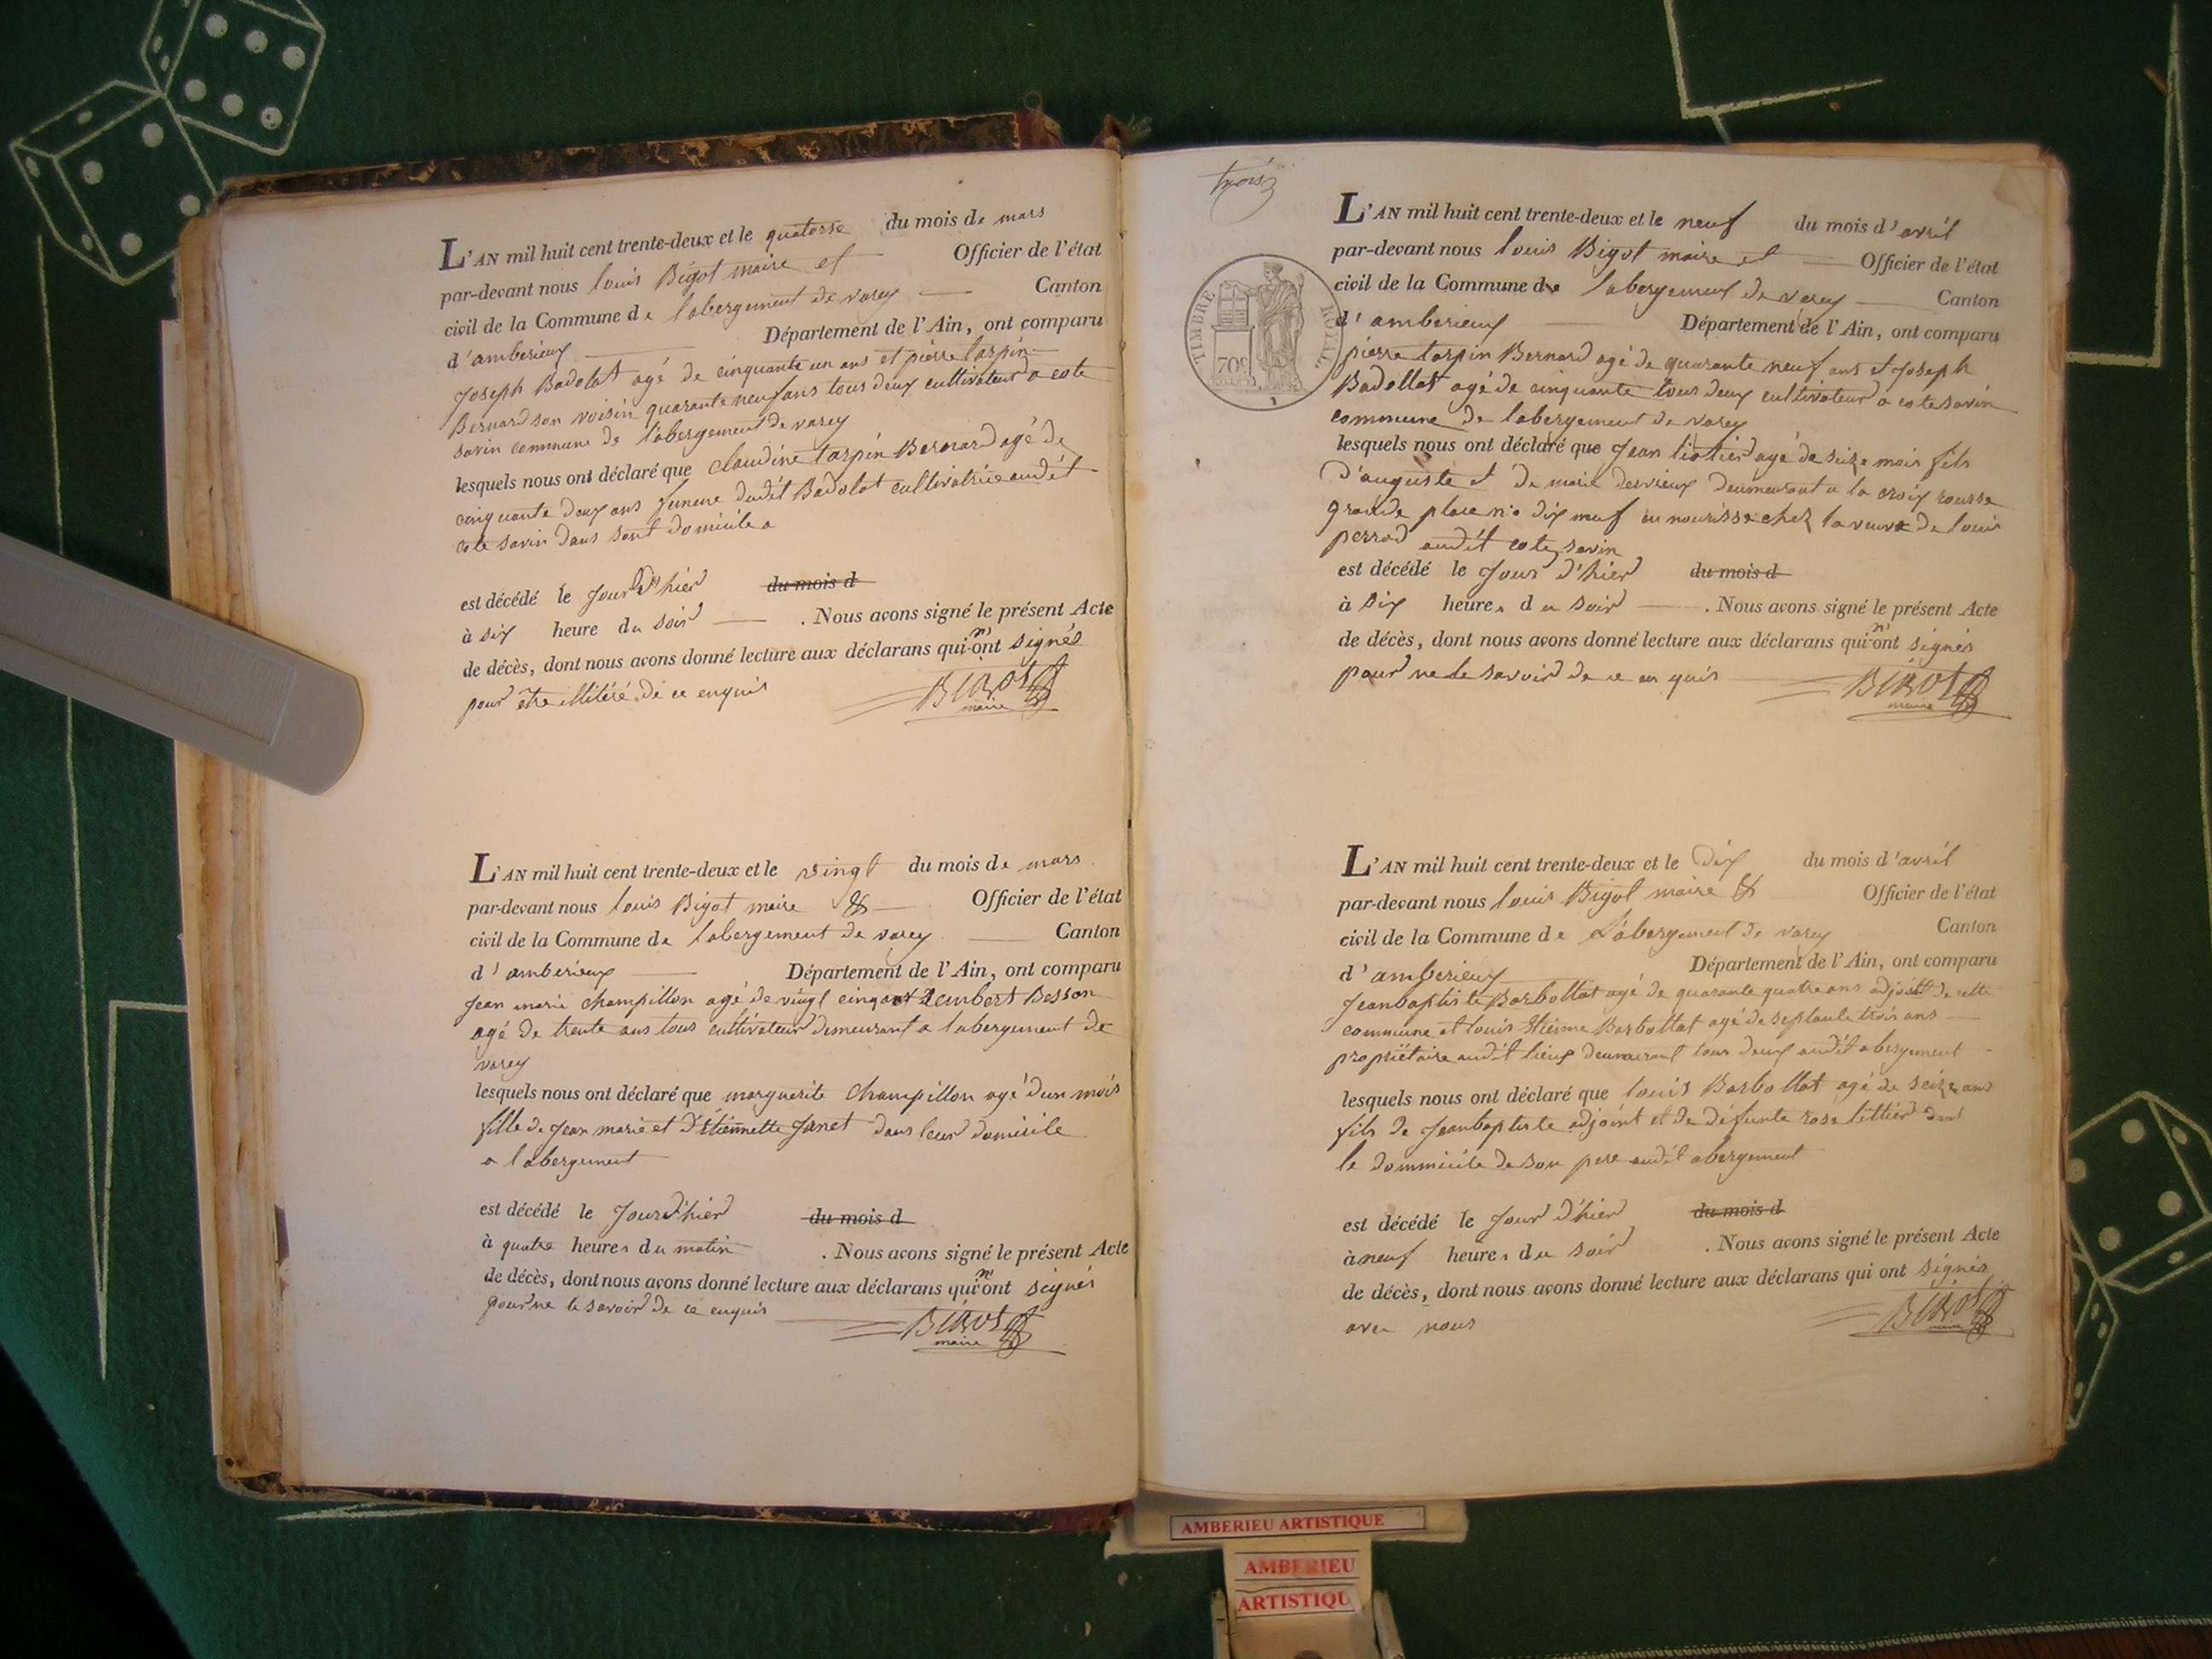 L'AN mil huit cent trente-deux et le quatorse du mois de mars
par-devant nous louis Bigot maire et Officier de l'état
civil de la Commune de labergement de varey Canton
d'amberieux Département de l'Ain, ont comparu
Joseph Badolat agé de cinquante un ans et pierre tarpin
Bernard son voisin quarante neuf ans tous deux cultivateur a cote
savin commune de labergement de varey
lesquels nous ont déclaré que claudine tarpin Bernard agé de
cinquante deux ans femme dudit Badolat cultivatrice audit
cote savin dans sont domicile a
est décédé le Jour d'hier du mois d
à six heure du soir . Nous avons signé le présent Acte
de décès, dont nous avons donné lecture aux déclarans qui n'ont signés
pour etre illitéré de ce enquis BIGOT
maire
L'AN mil huit cent trente-deux et le vingt du mois de mars
par-devant nous louis Bigot maire & Officier de l'état
civil de la Commune de labergement de varey Canton
d'amberieux Département de l'Ain, ont comparu
Jean marie Champillon agé de vingt cinq et Lembert Besson
agé de trente ans tous cultivateur demeurant a labergement de
varey
lesquels nous ont déclaré que marguerite Champillon agé d'un mois
fille de Jean marie et d'étiennette Janet dans leur domicile
a labergement
est décédé le Jour d'hier du mois d
à quatre heures du matin . Nous avons signé le présent Acte
de décès, dont nous avons donné lecture aux déclarans qui n'ont signés
pour ne le savoir de ce enquis BIGOT
maire
trois
TIMBRE ROYAL
70c
L'AN mil huit cent trente-deux et le neuf du mois d'avril
par-devant nous louis Bigot maire et Officier de l'état
civil de la Commune de labergement de varey Canton
d'amberieux Département de l'Ain, ont comparu
pierre tarpin Bernard agé de quarante neuf ans et Joseph
Badollat agé de cinquante tous deux cultivateur a cote savin
commune de labergement de varey
lesquels nous ont déclaré que Jean agé de seize mois fils
d'auguste et de marie dervieux demeurant a la croix rousse
grande place n.o dix neuf en nourisse chez la veuve de louis
perrod audit cote savin
est décédé le Jour d'hier du mois d
à six heures du soir . Nous avons signé le présent Acte
de décès, dont nous avons donné lecture aux déclarans qui n'ont signés
pour ne le savoir de ce en quis BIGOT
maire
L'AN mil huit cent trente-deux et le dix du mois d'avril
par-devant nous louis Bigot maire & Officier de l'état
civil de la Commune de Labergement de varey Canton
d'amberieux Département de l'Ain, ont comparu
Jeanbaptiste Barbollat agé de quarante quatre ans adjoint de cette
commune et louis Etienne Barbollat agé de septante trois ans
propriétaire audit lieux demeurant tous deux audit abergement
lesquels nous ont déclaré que louis Barbollat agé de seize ans
fils de Jeanbaptiste adjoint et de défunte rose littier dans
le dommicile de son pere audit abergement
est décédé le Jour d'hier du mois d
à neuf heures du soir . Nous avons signé le présent Acte
de décès, dont nous avons donné lecture aux déclarans qui ont signés
avec nous BIGOT
maire
AMBERIEU ARTISTIQUE
AMBERIEU
ARTISTIQU